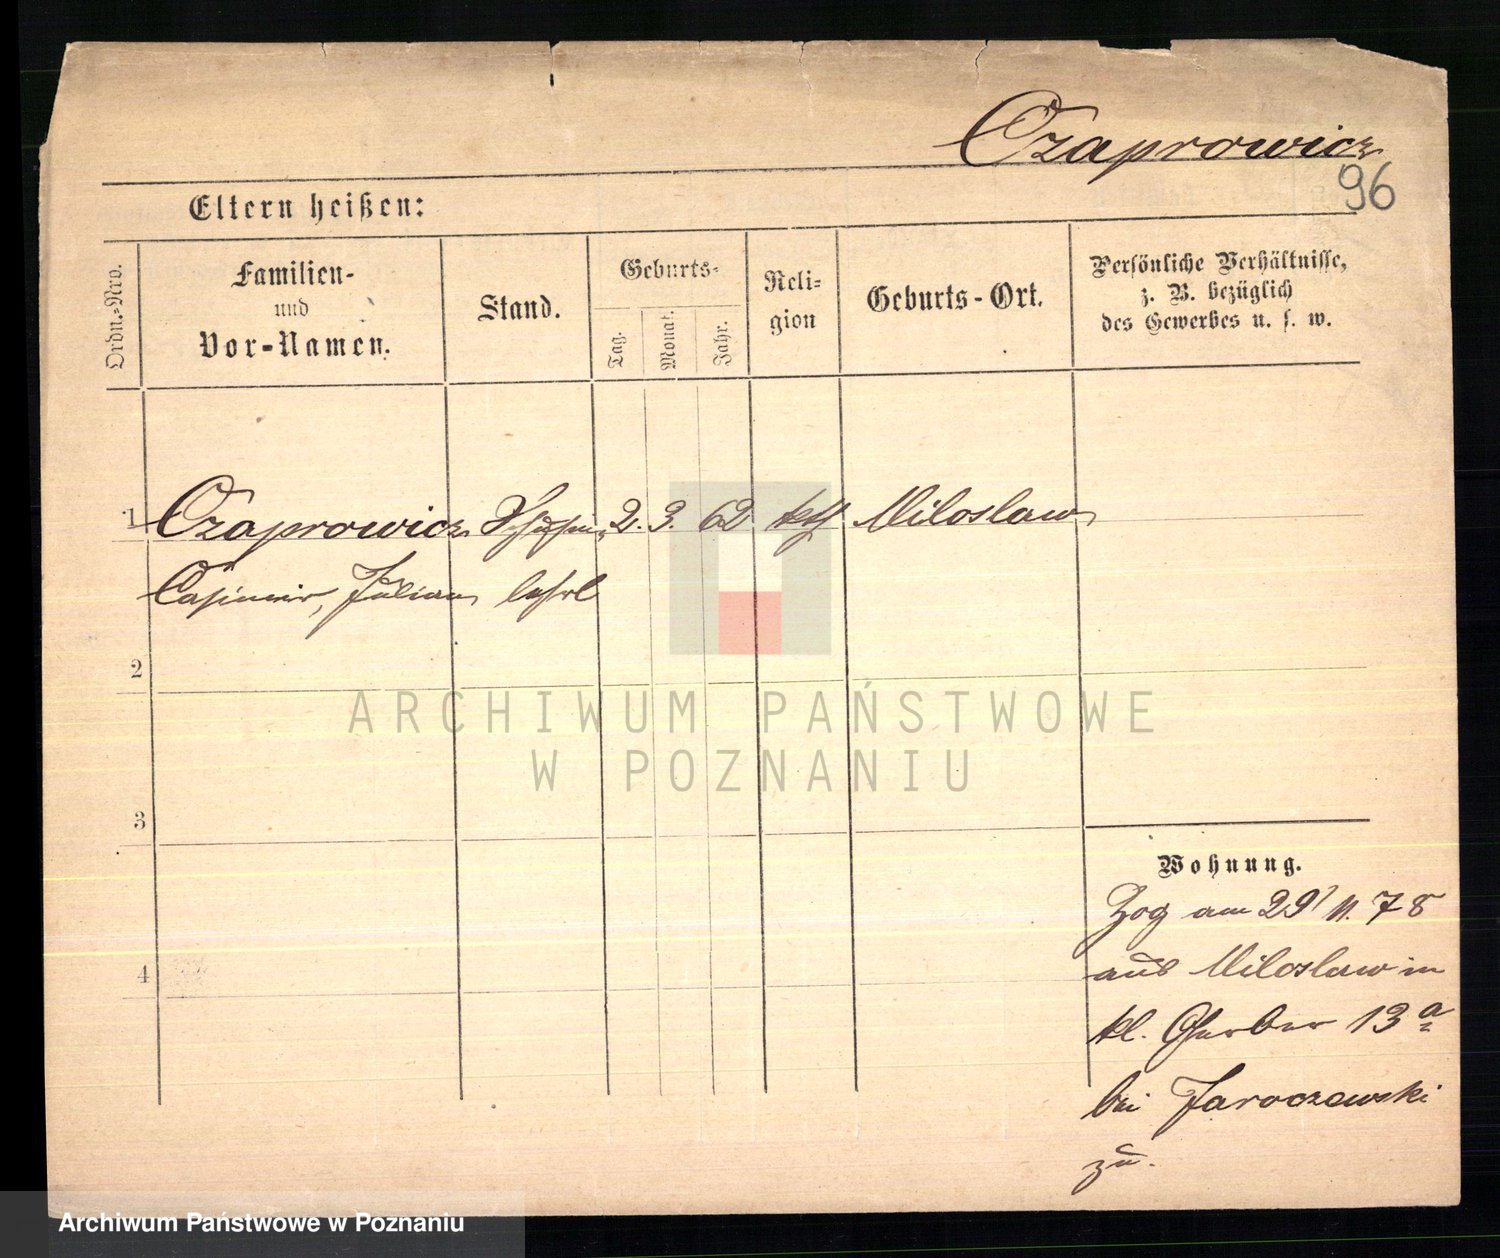 Czaprowicz
96
Eltern heißen:
Ordn.-Nro.
Familien-
und
Vor-Namen.
Stand.
Geburts-
Tag.
Monat.
Jahr.
Reli-
gion
Geburts-Ort.
Persönliche Verhältnisse,
z. B. bezüglich
des Gewerbes u. s. w.
1 Czaprowicz 2. 3. 62 kth Miloslaw
Casimir, Julian lehrl
2
ARCHIWUM PAŃSTWOWE
W POZNANIU
3
Wohnung.
Zog am 29/11. 78
aus Miloslaw in
4
kl. Gerber 13a
bei Jaroczewski
zu.
Archiwum Państwowe w Poznaniu